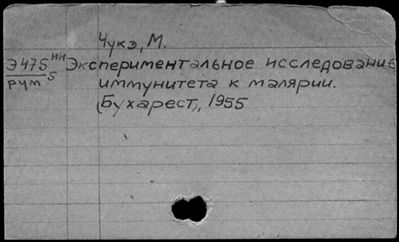 Чукэ, М.
Э475 ИИ Экспериментальное исследование
рум 5 иммунитета к малярии.
(Бухарест), 1955